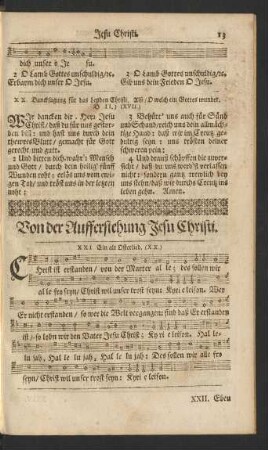 Jesu Christi. 13
dich unser o Je su.
2 O Lamb Gottes unschuldig/ꝛc.
Erbarm dich unser O Jesu.
3 O Lamb Gottes unschuldig/ꝛc.
Gib uns dein Frieden O Jesu.
XX. Dancksagung für das Leyden Christi. Aff/ O welch ein Gottes wunder.
O II,) (XVII.)
WIr dancken dir, Herr Jesu
Christ/ daß du für uns gestor-
ben bist: und hast uns durch dein
theures Blut/ gemacht für Gott
gerecht und gut.
2 Und bitten dich wahr'r Mensch
und Gott/ durch dein heilig fünff
Wunden roht: erlös uns vom ewi-
gen Tod/ und tröst uns in der letzten
noht:
3 Behüt' uns auch für Sünd
und Schand/ reich uns dein allmäch-
tige Hand: daß wir im Creutz ge-
dultig seyn: uns trösten deiner
schweren pein:
4 Und draus schöpffen die zuver-
sicht: daß du uns werd'st verlassen
nicht: sondern gantz treulich bey
uns stehn/ daß wir durchs Creutz ins
leben gehn. Amen.
Von der Aufferstehung Jesu Christi.
XXI. Ein alt Osterlied. (XX.)
CHrist ist erstanden/ von der Marter al le; des sollen wir
al le fro seyn/ Christ wil unser trost seyn: Kyri e leison. Wer
Er nicht erstanden/ so wer die Welt vergangen: sind daß Er erstanden
ist/ so lobn wir den Vater Jesu Christ; Ky ri e leison. Hal le-
lu jah, Hal le lu jah, Hal le lu jah; Des sollen wir alle fro
seyn/ Christ wil unser trost seyn: Kyri e leison.
XXII. Eben